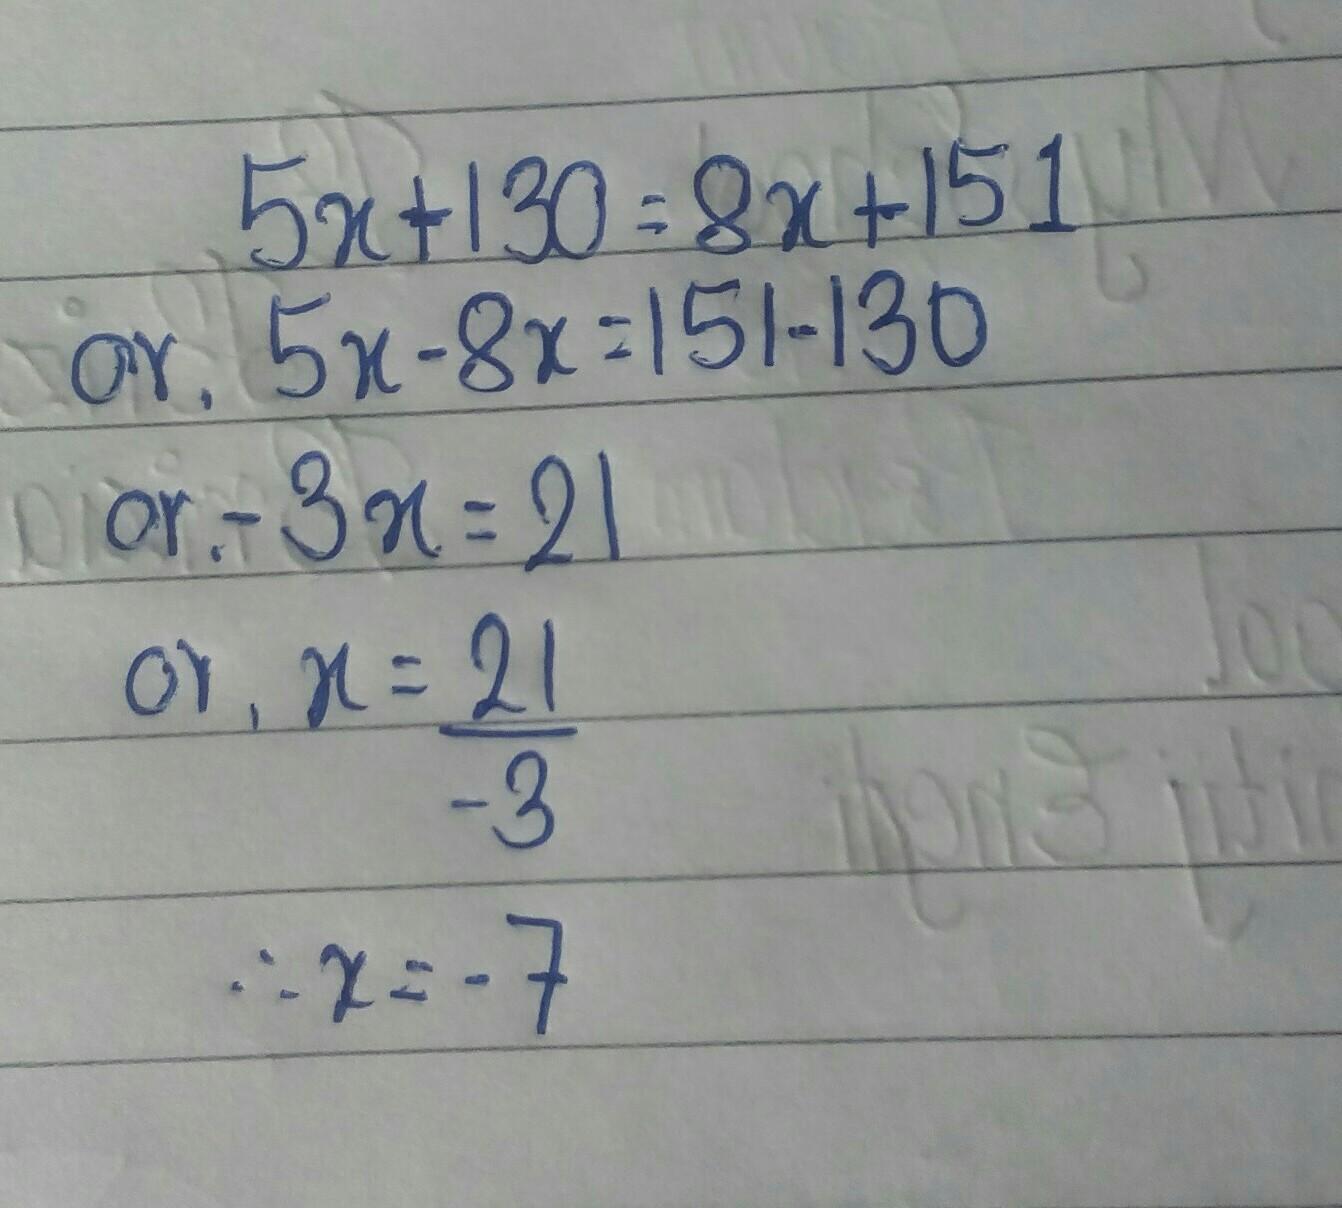 5x+130=8x+151
or, 5x-8x=151-130
or, -3x=21
or, x=21/-3
∴x=-7